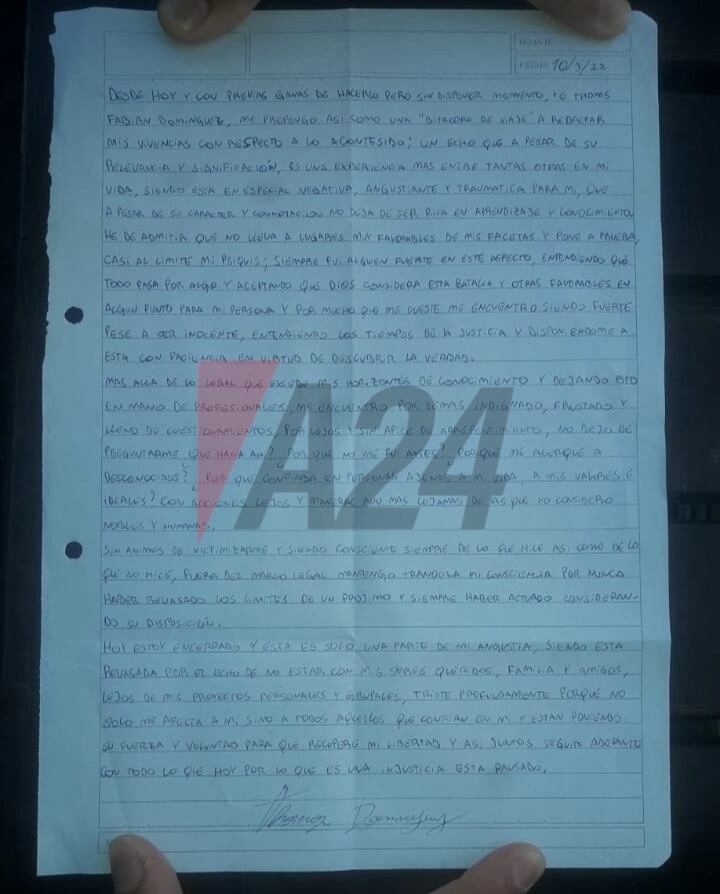 HOJA Nº
FECHA 10/3/22
DESDE HOY Y CON PREVIAS GANAS DE HACERLO PERO SIN DISPONER MOMENTO, YO THOMAS
FABIAN DOMINGUEZ, ME PROPONGO ASI COMO UNA "BITACORA DE VIAJE" A REDACTAR
MIS VIVENCIAS CON RESPECTO A LO ACONTESIDO; UN ECHO QUE A PESAR DE SU
RELEVANCIA Y SIGNIFICACIÓN, ES UNA EXPERIENCIA MAS ENTRE TANTAS OTRAS EN MI
VIDA, SIENDO ESTA EN ESPECIAL NEGATIVA, ANGUSTIANTE Y TRAUMATICA PARA MI, QUE
A PESAR DE SU CARACTER Y CONNOTACION NO DEJA DE SER RICA EN APRENDIZAJE Y CONOCIMIENTO.
HE DE ADMITIR QUE NO LLEVA A LUGARES MUY FAVORABLES DE MIS FACETAS Y PONE A PRUEBA,
CASI AL LIMITE MI PSIQUIS; SIEMPRE FUI ALGUIEN FUERTE EN ESTE ASPECTO, ENTENDIENDO QUE
TODO PASA POR ALGO Y ACEPTANDO QUE DIOS CONSIDERA ESTA BATALLA Y OTRAS FAVORABLES EN
ALGUN PUNTO PARA MI PERSONA Y POR MUCHO QUE ME CUESTE ME ENCUENTRO SIENDO FUERTE
PESE A SER INOCENTE, ENTENDIENDO LOS TIEMPOS DE LA JUSTICIA Y DISPONIENDOME A
ESTA CON PACIENCIA EN VIRTUD DE DESCUBRIR LA VERDAD.
MAS ALLA DE LO LEGAL QUE EXCEDE MIS HORIZONTES DE CONOCIMIENTO Y DEJANDO ESTO
EN MANO DE PROFESIONALES, ME ENCUENTRO POR DEMAS INDIGNADO, FRUSTADO Y
LLENO DE CUESTIONAMIENTOS, POR LEJOS Y SIN APICE DE ARREPENTIMIENTO, NO DEJO DE
PREGUNTARME QUE HACIA AHI? POR QUE NO ME FUI ANTES? PORQUE ME ACERQUE A
DESCONOCIDUS? POR QUE CONFIABA EN PERSONAS AJENAS A MI VIDA, A MIS VALORES E
IDEALES? CON ACCIONES LEJOS Y MANERAS AUN MAS LEJANAS DE LAS QUE YO CONSIDERO
NOBLES Y HUMANAS.
SIN ANIMOS DE VICTIMIZARME Y SIENDO CONSCIENTE SIEMPRE DE LO QUE HICE ASI COMO DE LO
QUE NO HICE, FUERA DEL MARCO LEGAL MANTENGO TRANQUILA MI CONSCIENCIA POR NUNCA
HABER REVASADO LOS LIMITES DE UN PROJIMO Y SIEMPRE HABER ACTUADO CONSIDERAN-
DO SU DISPOSICIÓN.
HOY ESTOY ENCERRADO Y ESTA ES SOLO UNA PARTE DE MI ANGUSTIA, SIENDO ESTA
REVASADA POR EL ECHO DE NO ESTAR CON MIS SERES QUERIDOS, FAMILIA Y AMIGOS,
LEJOS DE MIS PROYECTOS PERSONALES Y GRUPALES, TRISTE PROFUNDAMENTE PORQUE NO
SOLO ME AFECTA A MI SINO A TODOS AQUELLOS QUE CONFIAN EN MI Y ESTAN PONIENDO
SU FUERZA Y VOLUNTAD PARA QUE RECUPERE MI LIBERTAD Y ASI JUNTOS SEGUIR ADELANTE
CON TODO LO QUE HOY POR LO QUE ES UNA INJUSTICIA ESTA PAUSADO.
Thomas Dominguez
A24